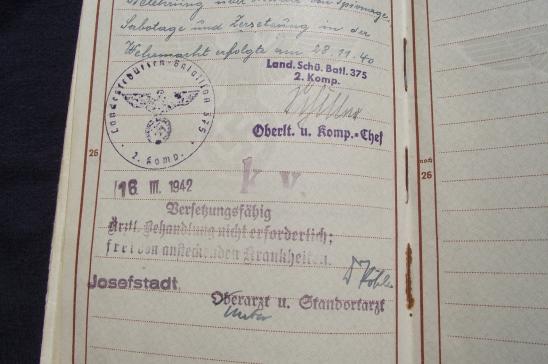 Belehrung über Abwehr von Spionage,
Sabotage und Zersetzung in der
Wehrmacht erfolgte am 28.11.40
Landesschützen-Bataillon 375
2. Komp.
Land. Schü. Batl. 375
2. Komp.
Oberlt. u. Komp.-Chef
26
noch
26
k.v.
16. III. 1942
Versetzungsfähig
Ärztl. Behandlung nicht erforderlich;
frei von ansteckenden Krankheiten.
Josefstadt
Oberarzt u. Standortarzt